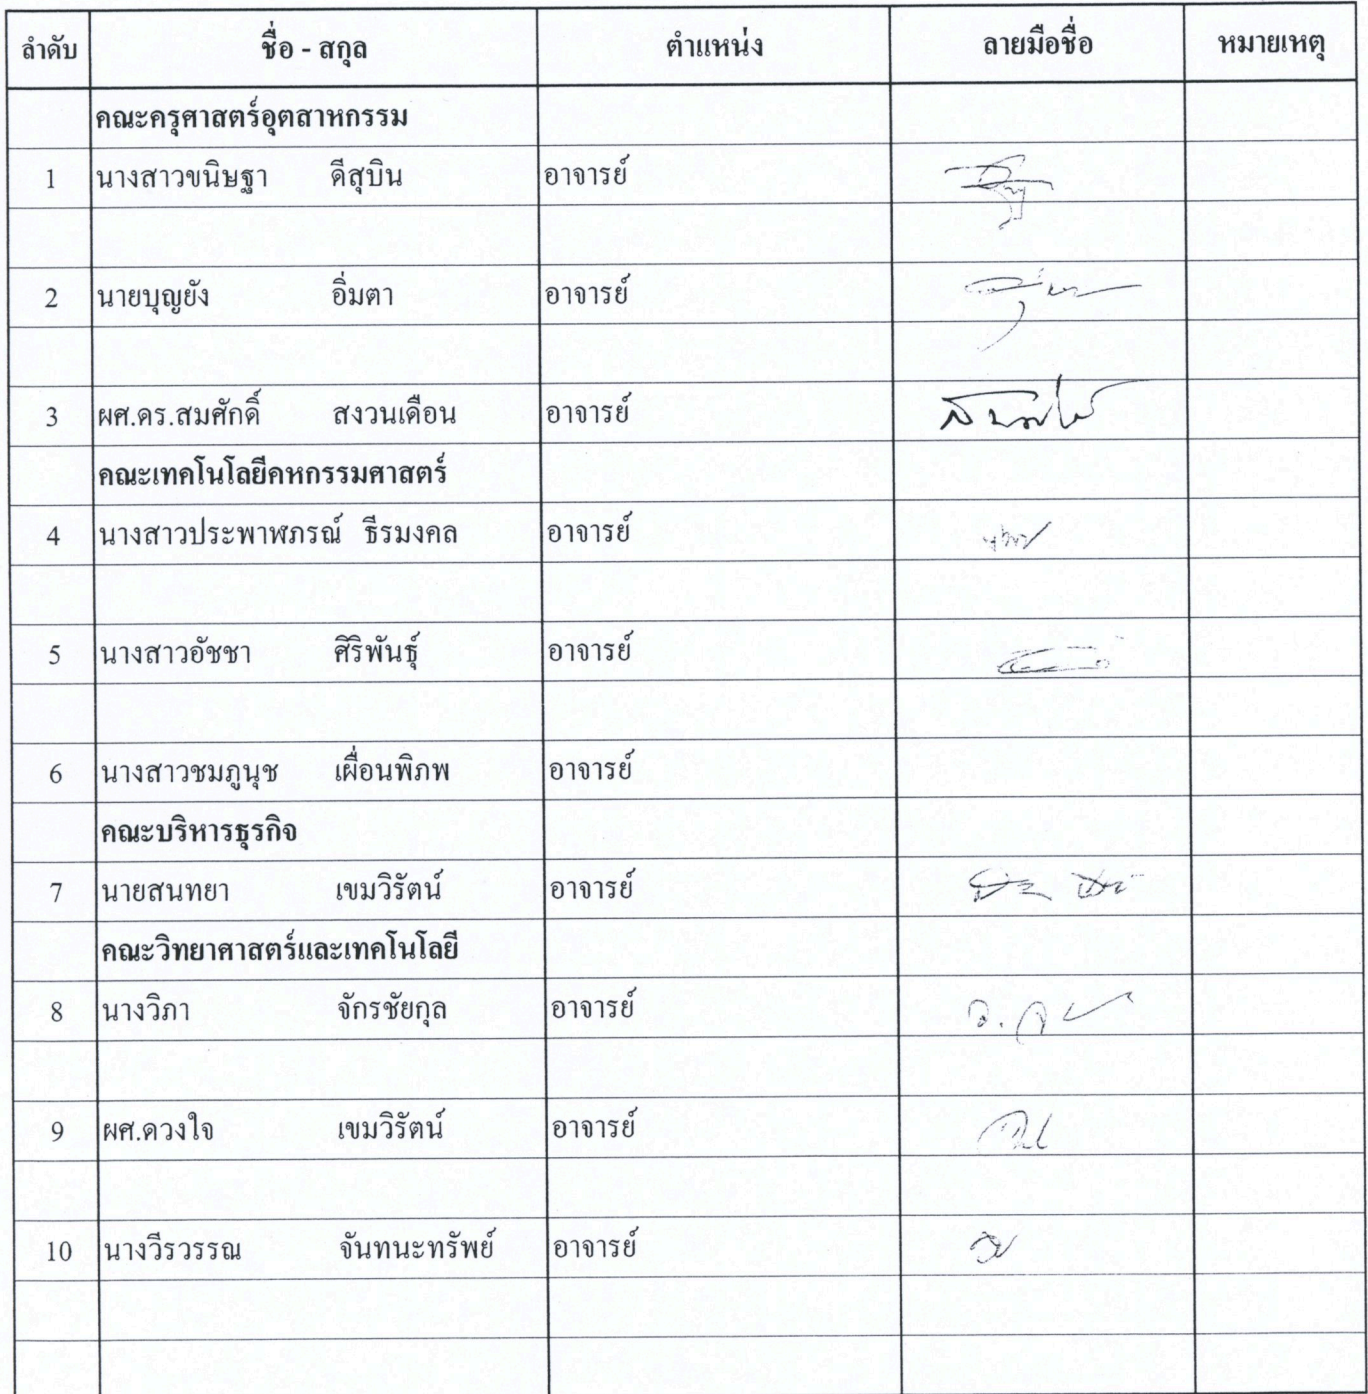 ลำดับ ชื่อ - สกุล ตำแหน่ง ลายมือชื่อ หมายเหตุ
คณะครุศาสตร์อุตสาหกรรม
1 นางสาวขนิษฐา ดีสุบิน อาจารย์
2 นายบุญยัง อิ่มตา อาจารย์
3 ผศ.ดร.สมศักดิ์ สงวนเดือน อาจารย์
คณะเทคโนโลยีคหกรรมศาสตร์
4 นางสาวประพาฬภรณ์ ธีรมงคล อาจารย์
5 นางสาวอัชชา ศิริพันธุ์ อาจารย์
6 นางสาวชมภูนุช เผื่อนพิภพ อาจารย์
คณะบริหารธุรกิจ
7 นายสนทยา เขมวิรัตน์ อาจารย์
คณะวิทยาศาสตร์และเทคโนโลยี
8 นางวิภา จักรชัยกุล อาจารย์
9 ผศ.ดวงใจ เขมวิรัตน์ อาจารย์
10 นางวีรวรรณ จันทนะทรัพย์ อาจารย์